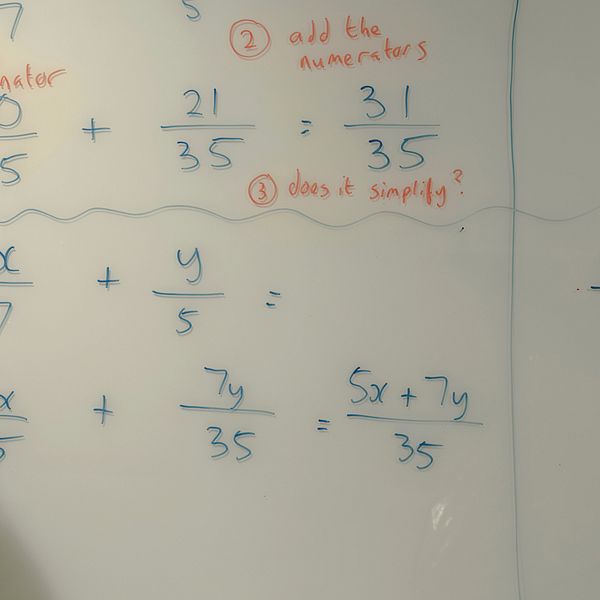 7 5
② add the
numerators
nator
0/5 + 21/35 = 31/35
③ does it simplify?
x/7 + y/5 =
x/5 + 7y/35 = 5x + 7y/35